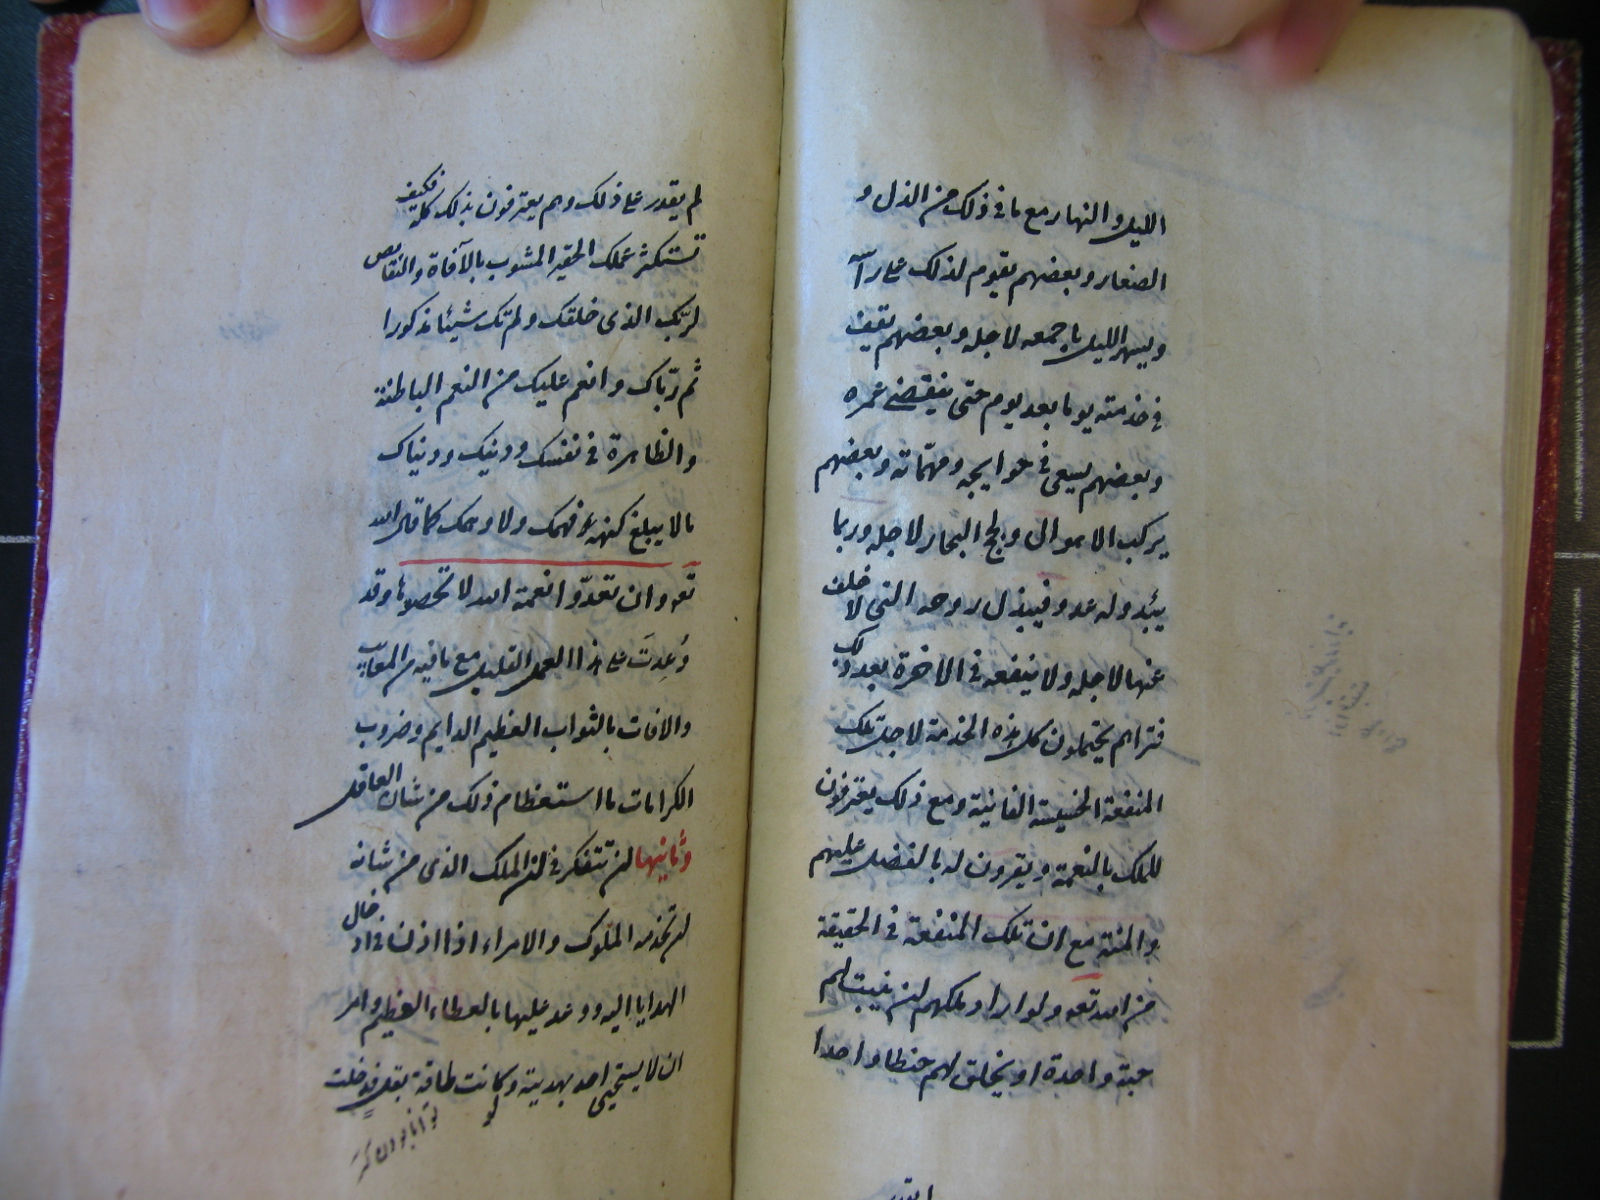 الليل والنهار مع ما في ذلك من الذل و
الصغار وبعضهم يقوم لذلك على رأسه
ويسهر الليل باجمعه لاجله وبعضهم يقف
في خدمته يوما بعد يوم حتى ينقضي عمره
وبعضهم يسعى في حوايجه ومهمّاته وبعضهم
يركب الاهوال ولجج البحار لاجله وربما
يبدو له عدو فيبذل روحه التي لا خلف
عنها لاجله ولا ينفعه في الاخرة بعد ذلك
فتراهم يحتملون كل هذه الخدمة لاجل تلك
المنفعة الخسيسة الفانية ومع ذلك يعترفون
للملك بالنعمة ويقرون له بالفضل عليهم
والمنة مع ان تلك المنفعة في الحقيقة
من الله تعه ولو اراد ملكهم ان ينبت لهم
حبة واحدة او يخلق لهم خيطا واحدا
لم يقدر على ذلك وهم يعترفون بذلك كله فكيف
تستكثر عملك الحقير المشوب بالآفاة والنقايص
لربك الذي خلقك ولم تك شيئا مذكورا
ثم ربّاك وانعم عليك من النعم الباطنة
والظاهرة في نفسك ودينك ودنياك
ما لا يبلغ كنهه فهمك ولا وهمك كما قال الله
تعه وان تعدّوا نعمة الله لا تحصوها وقد
وُعِدتَ على هذا العمل القليل مع ما فيه من المعايب
والافات بالثواب العظيم الدايم وضروب
الكرامات ما استعظام ذلك من شان العاقل
وثانيها ان تتفكر في ان الملك الذي من شانه
ان تخدمه الملوك والامراء اذا اذن في ادخال
الهدايا اليه ووعد عليها بالعطاء العظيم وامر
ان لا يستحيي احد بهدية ولو كانت طاقة بقل فدخلت